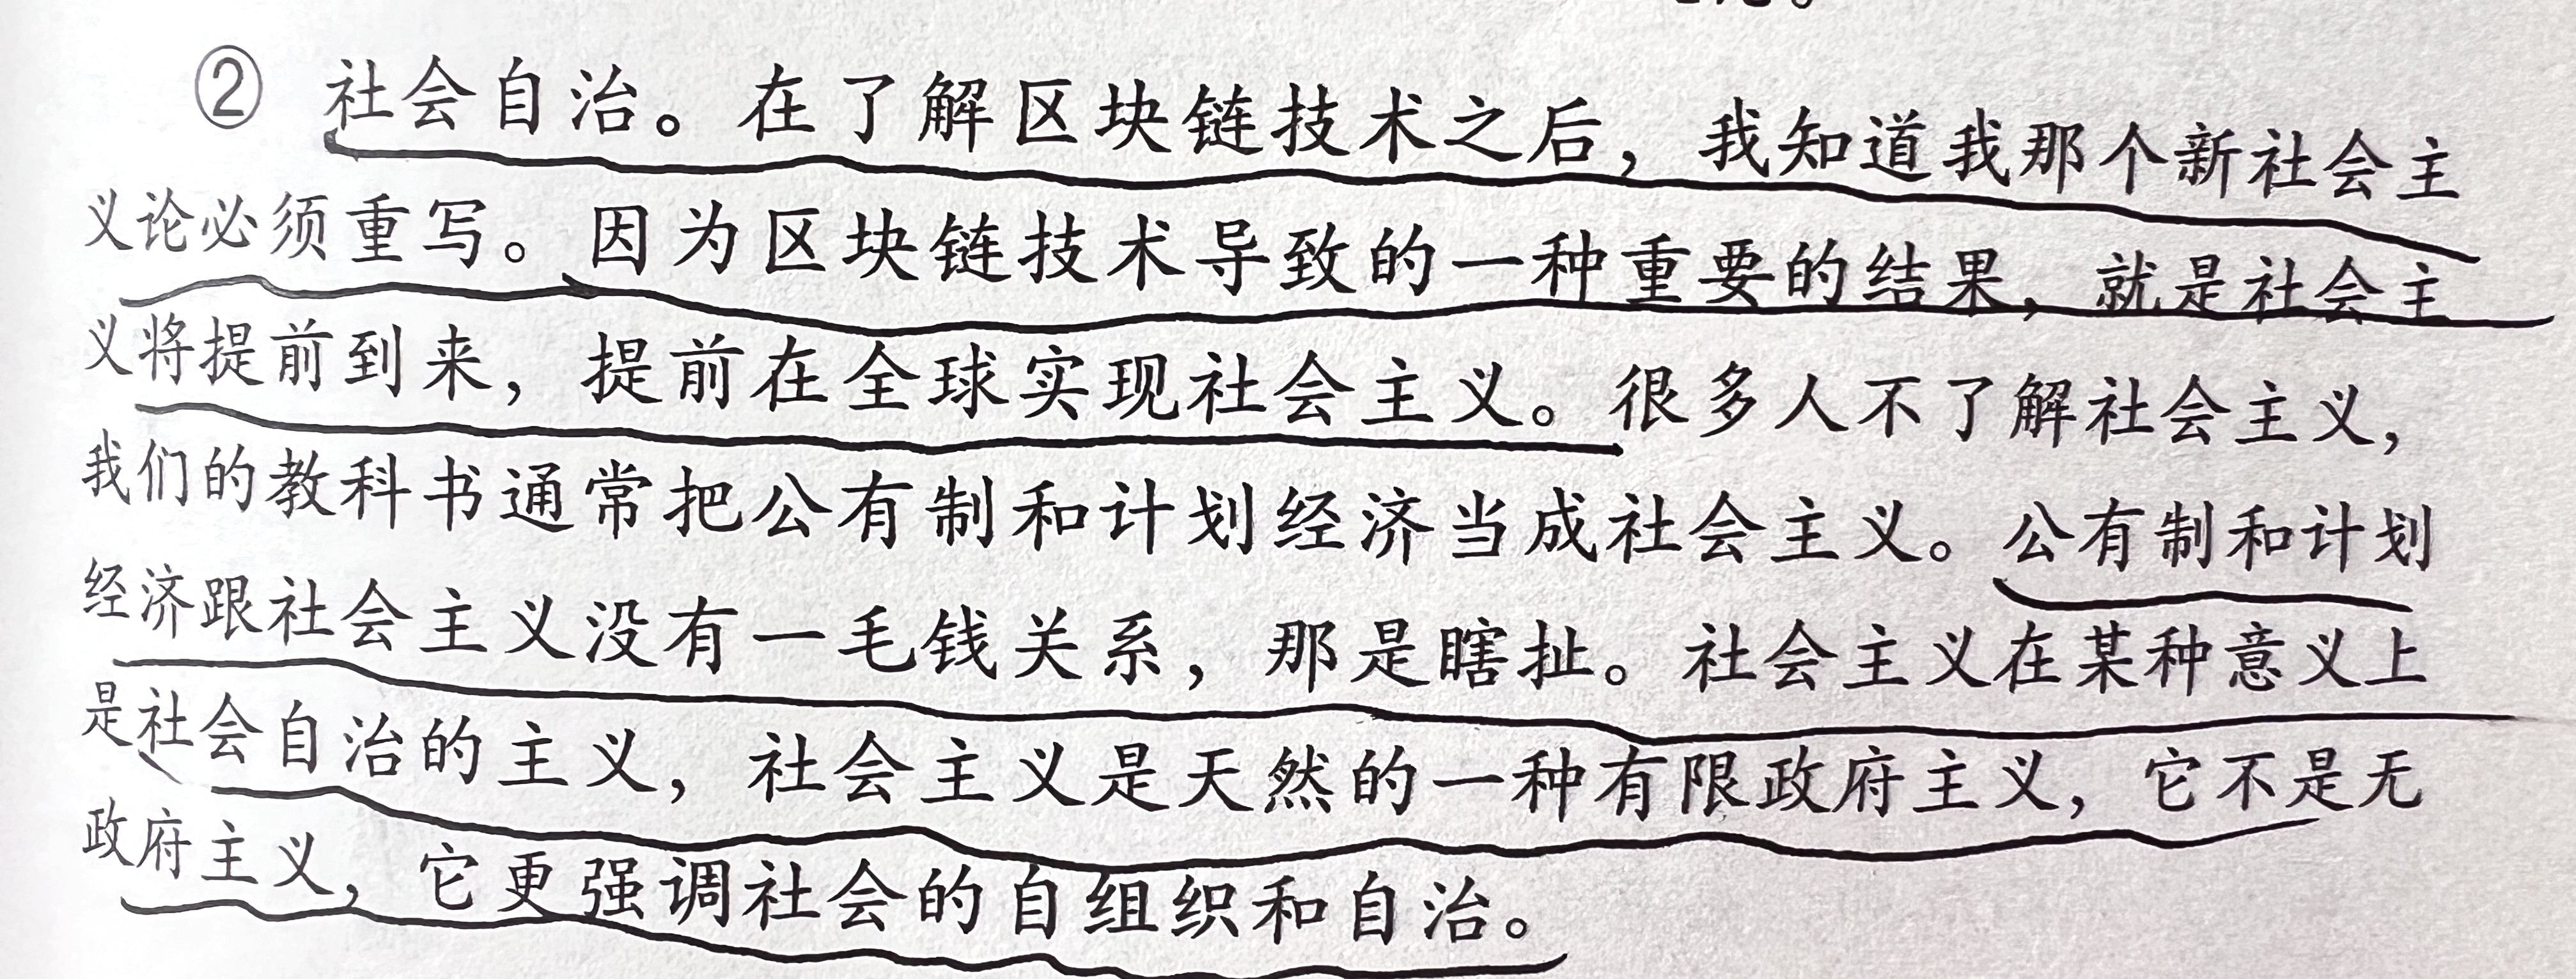 ② 社会自治。在了解区块链技术之后，我知道我那个新社会主
义论必须重写。因为区块链技术导致的一种重要的结果，就是社会主
义将提前到来，提前在全球实现社会主义。很多人不了解社会主义，
我们的教科书通常把公有制和计划经济当成社会主义。公有制和计划
经济跟社会主义没有一毛钱关系，那是瞎扯。社会主义在某种意义上
是社会自治的主义，社会主义是天然的一种有限政府主义，它不是无
政府主义，它更强调社会的自组织和自治。